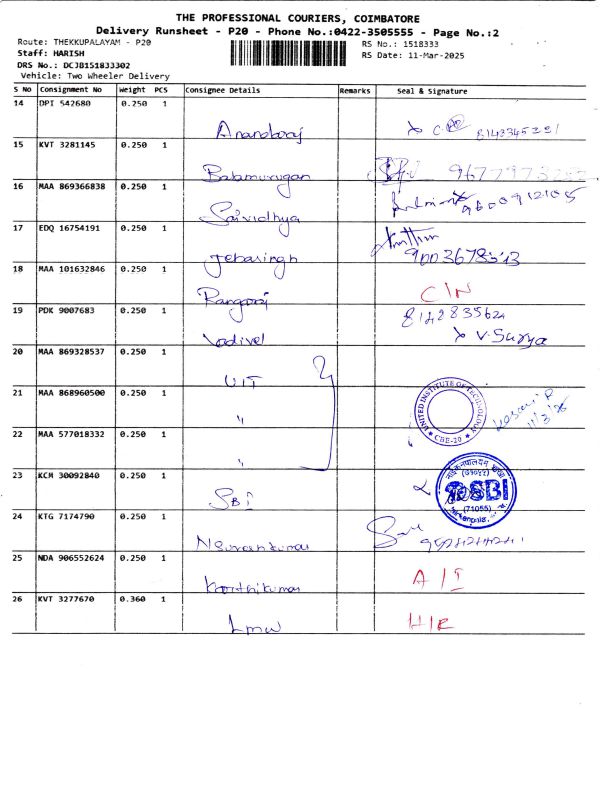 THE PROFESSIONAL COURIERS, COIMBATORE
Delivery Runsheet - P20 - Phone No.:0422-3505555 - Page No.:2
Route: THEKKUPALAYAM - P20
RS No.: 1518333
Staff: HARISH
RS Date: 11-Mar-2025
DRS No.: DCJB151833302
Vehicle: Two Wheeler Delivery
S No Consignment No Weight PCS Consignee Details Remarks Seal & Signature
14 DPI 542680 0.250 1
Anandaraj
15 KVT 3281145 0.250 1
Balamurugan
16 MAA 869366838 0.250 1
Saividhya 9600912105
17 EDQ 16754191 0.250 1
Jebasingh
18 MAA 101632846 0.250 1
Rangaraj C/N
19 PDK 9007683 0.250 1 8142835624
Vadivel V. Surya
20 MAA 869328537 0.250 1
UIT
21 MAA 868960500 0.250 1
"
UNITED INSTITUTE OF TECHNOLOGY
CBE-20
22 MAA 577018332 0.250 1
"
23 KCM 30092840 0.250 1
SBI
SBI
(71055)
24 KTG 7174790 0.250 1
25 NDA 906552624 0.250 1
Karthikumar A/I
26 KVT 3277670 0.360 1
Lmw